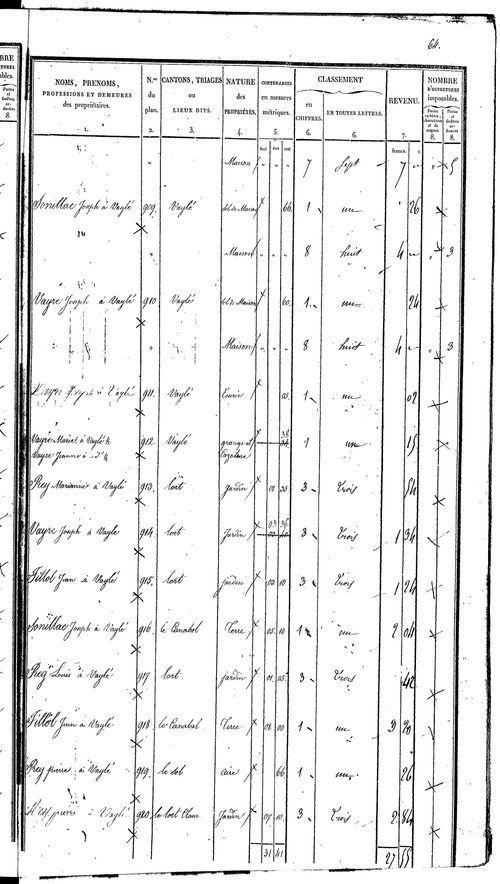 64.
NOMS, PRENOMS, PROFESSIONS ET DEMEURES des propriétaires. N.os du plan. CANTONS, TRIAGES ou LIEUX DITS. NATURE des PROPRIÉTÉS. CONTENANCES en mesures métriques. CLASSEMENT en CHIFFRES. EN TOUTES LETTRES. REVENU. NOMBRE D'OUVERTURES imposables.
1. 2. 3. 4. 5. 6. 6. 7. 8. 8.
francs. c.
" Maison " " " 7 Sept 7 " " 5
Sonillac Joseph à Vaylé 909. Vaylé sol de Maison 66. 1 un " 26
" Maison " " " 8 huit 4 " " 3
Vayre Joseph à Vaylé 910 Vaylé sol de Maison 60. 1 un 24
" Maison " " " 8 huit 4 " " 3
Vayre Joseph à Vaylé 911. Vaylé Ecurie 05. 1 un 02
Vayre Marie à Vaylé ½ 912 Vaylé grange et 38 1 un 15
Vayre Jeanne à id ½
Rey Marianne à Vaylé 913. lort Jardin 01 35 3 Trois 54
Vayre Joseph à Vaylé 914. lort Jardin 03 36 3 Trois 1 34
Fillol Jean à Vaylé 915. lort Jardin 03 10 3 Trois 1 24
Sonillac Joseph à Vaylé 916 le Canabal Terre 05 10 1 un 2 04
Rey Louis à Vaylé 917 lort Jardin 01 05 3 Trois 42
Fillol Jean à Vaylé 918 le Canabal Terre 08 00 1 un 3 20
Rey pierre à Vaylé 919. le sol aire 66 1 un 26
Rey pierre à Vaylé 920. le lort Claux Jardin 07 10 3 Trois 2 84
31 41 27 55